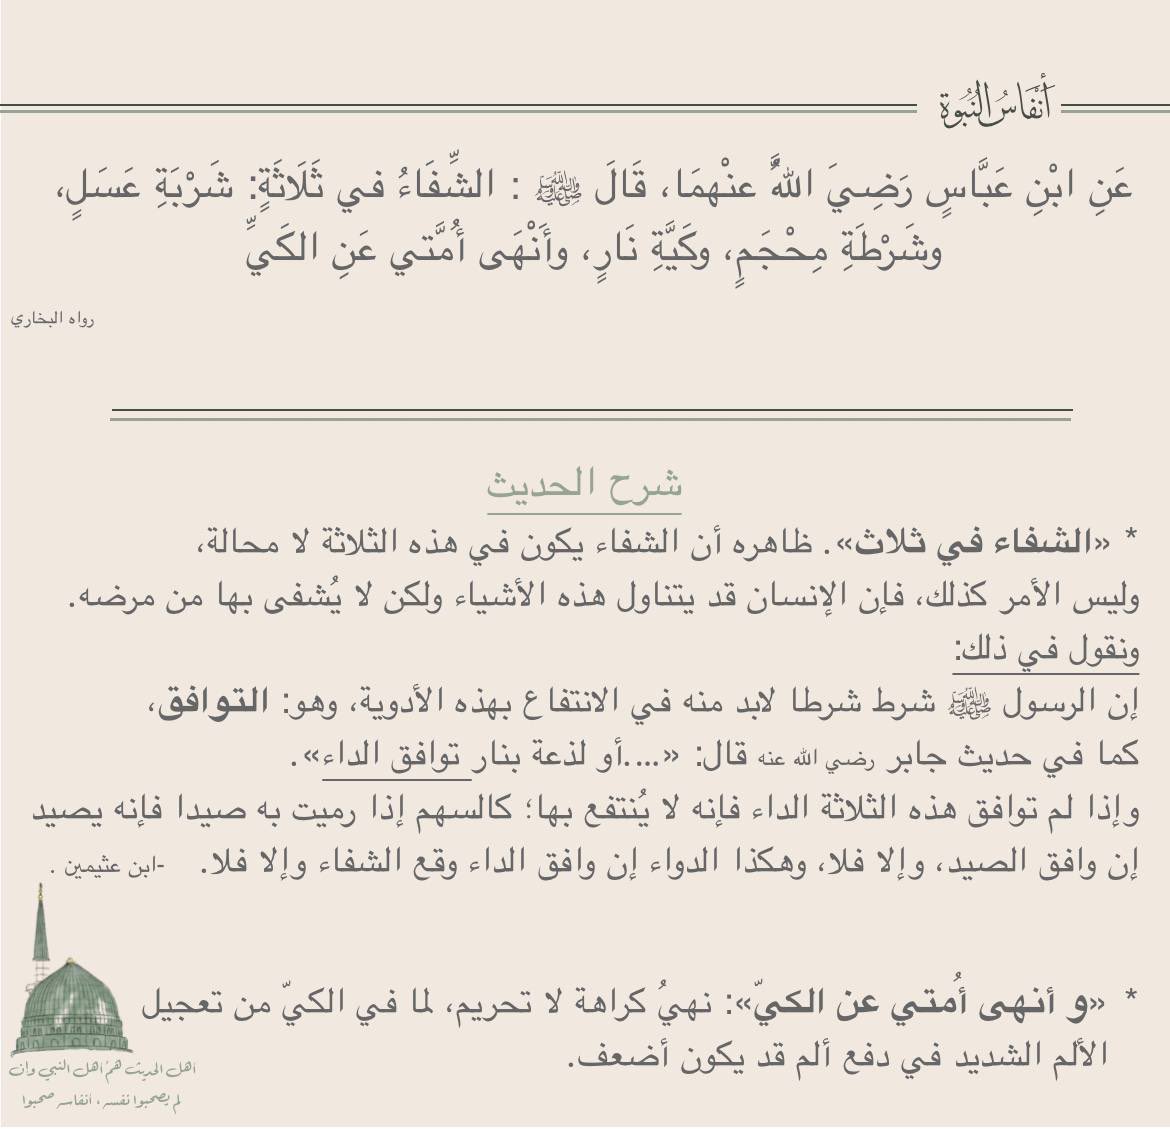 أَنْفَاسُ النُّبُوة
عَنِ ابْنِ عَبَّاسٍ رَضِيَ اللهُ عنْهمَا، قَالَ ﷺ : الشِّفَاءُ في ثَلَاثَةٍ: شَرْبَةِ عَسَلٍ،
وشَرْطَةِ مِحْجَمٍ، وكَيَّةِ نَارٍ، وأَنْهَى أُمَّتي عَنِ الكَيِّ
رواه البخاري
شرح الحديث
* «الشفاء في ثلاث». ظاهره أن الشفاء يكون في هذه الثلاثة لا محالة،
وليس الأمر كذلك، فإن الإنسان قد يتناول هذه الأشياء ولكن لا يُشفى بها من مرضه.
ونقول في ذلك:
إن الرسول ﷺ شرط شرطا لابد منه في الانتفاع بهذه الأدوية، وهو: التوافق،
كما في حديث جابر رضي الله عنه قال: «...أو لذعة بنار توافق الداء».
وإذا لم توافق هذه الثلاثة الداء فإنه لا يُنتفع بها؛ كالسهم إذا رميت به صيدا فإنه يصيد
إن وافق الصيد، وإلا فلا، وهكذا الدواء إن وافق الداء وقع الشفاء وإلا فلا. -ابن عثيمين .
* «و أنهى أُمتي عن الكيّ»: نهيُ كراهة لا تحريم، لما في الكيّ من تعجيل
الألم الشديد في دفع ألم قد يكون أضعف.
اهل الحديث همُ اهل النبي وان
لم يصحبوا نفسه ، انفاسه صحبوا